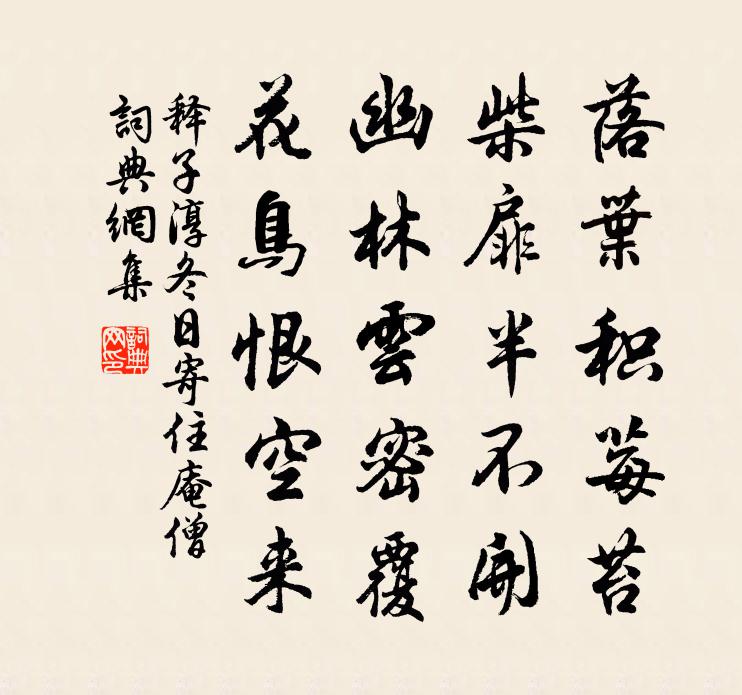 落葉积莓苔
柴扉半不開
幽林雲密覆
花鳥恨空来
释子淳冬日寄住庵僧
詞典網集
詞典网印